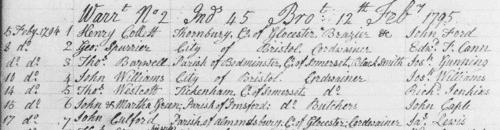 Warrt No 2 Ind 45 Bro.t 12th Feby 1795
5 Feby 1794 1 Henry Collett Thornbury, Co of Glocester Brazier & John Ford
8 do 2 Geo: Spurrier City of Bristol Cordwainer Edwd T. Cann
do do 3 Thos Barwell Parish of Bedminster, Co of Somerset, Black Smith Jos: Gunning
10 do 4 John Williams City of Bristol Cordwainer Jos: Williams
14 do 5 Thos Westcott Tickenham, Co of Somerset do Richd Jenkins
16 do 6 John & Martha Green; Parish of do Butchers John Caple
17 do 7 John Parish of Almondsbury; Co of Glocester; Cordwainer Jas Lewis